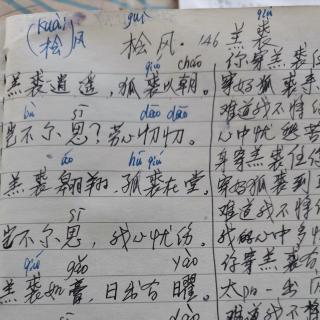 (kuài) guì qiú
(桧)风 桧风·146 羔裘
你穿羔裘
qiú cháo
羔裘逍遥，狐裘以朝。
穿好狐裘
bù sī dāo dāo
岂不尔思？劳心忉忉。
难道我不
心中忧
áo hú qiú
羔裘翱翔，狐裘在堂。
身穿羔裘
穿好狐裘到
难道我不
sī
岂不尔思，我心忧伤。
我的心中
qiú gāo yào
羔裘如膏，日出有曜。
你穿羔裘
太阳一出
难道我不